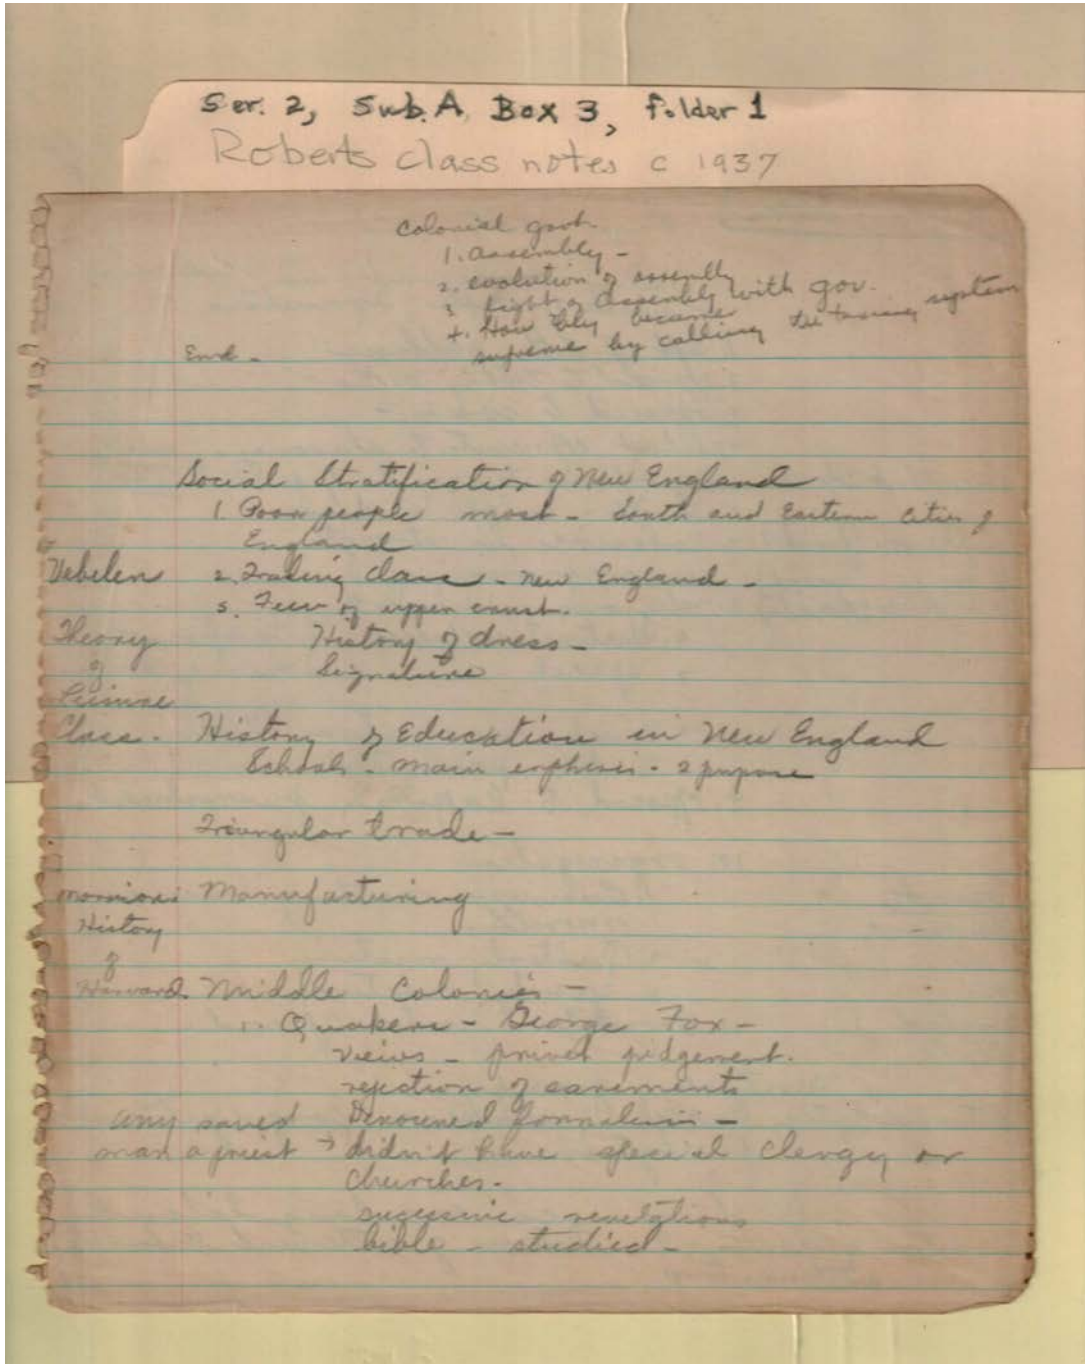 Ser. 2, Sub. A, Box 3, folder 1
Roberts class notes c 1937
Colonial govt.
1. assembly -
2. evolution of assembly
3 fight of assembly with gov.
4. How they became
supreme by calling the taxing system
End -
Social Stratification of New England
1. Poor people most - South and Eastern cities of
England
Vebelen 2. Trading class - New England -
3. Few of upper crust.
Theory History of dress -
of Signature
Leisure
Class - History of Education in New England
Schools - main emphesis - 2 purpose
Triangular trade -
Morrison: Manufacturing
History
of
Harvard Middle Colonies -
1. Quakers - George Fox -
views - privat judgement.
rejection of sacrements
any saved Denouned formalism -
man a priest → didn't have special clergy or
churches.
sucessive reveltions
bible - studied -